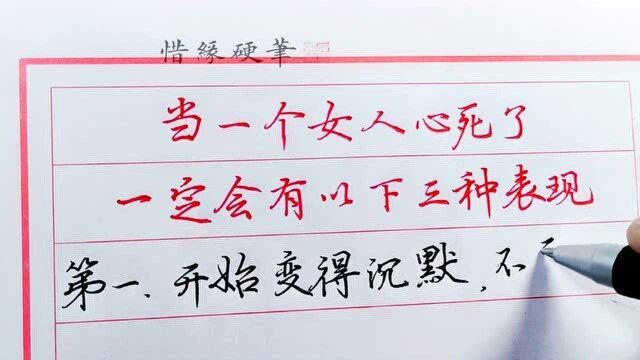 惜緣硬筆
当一个女人心死了
一定会有以下三种表现
第一、开始变得沉默，不